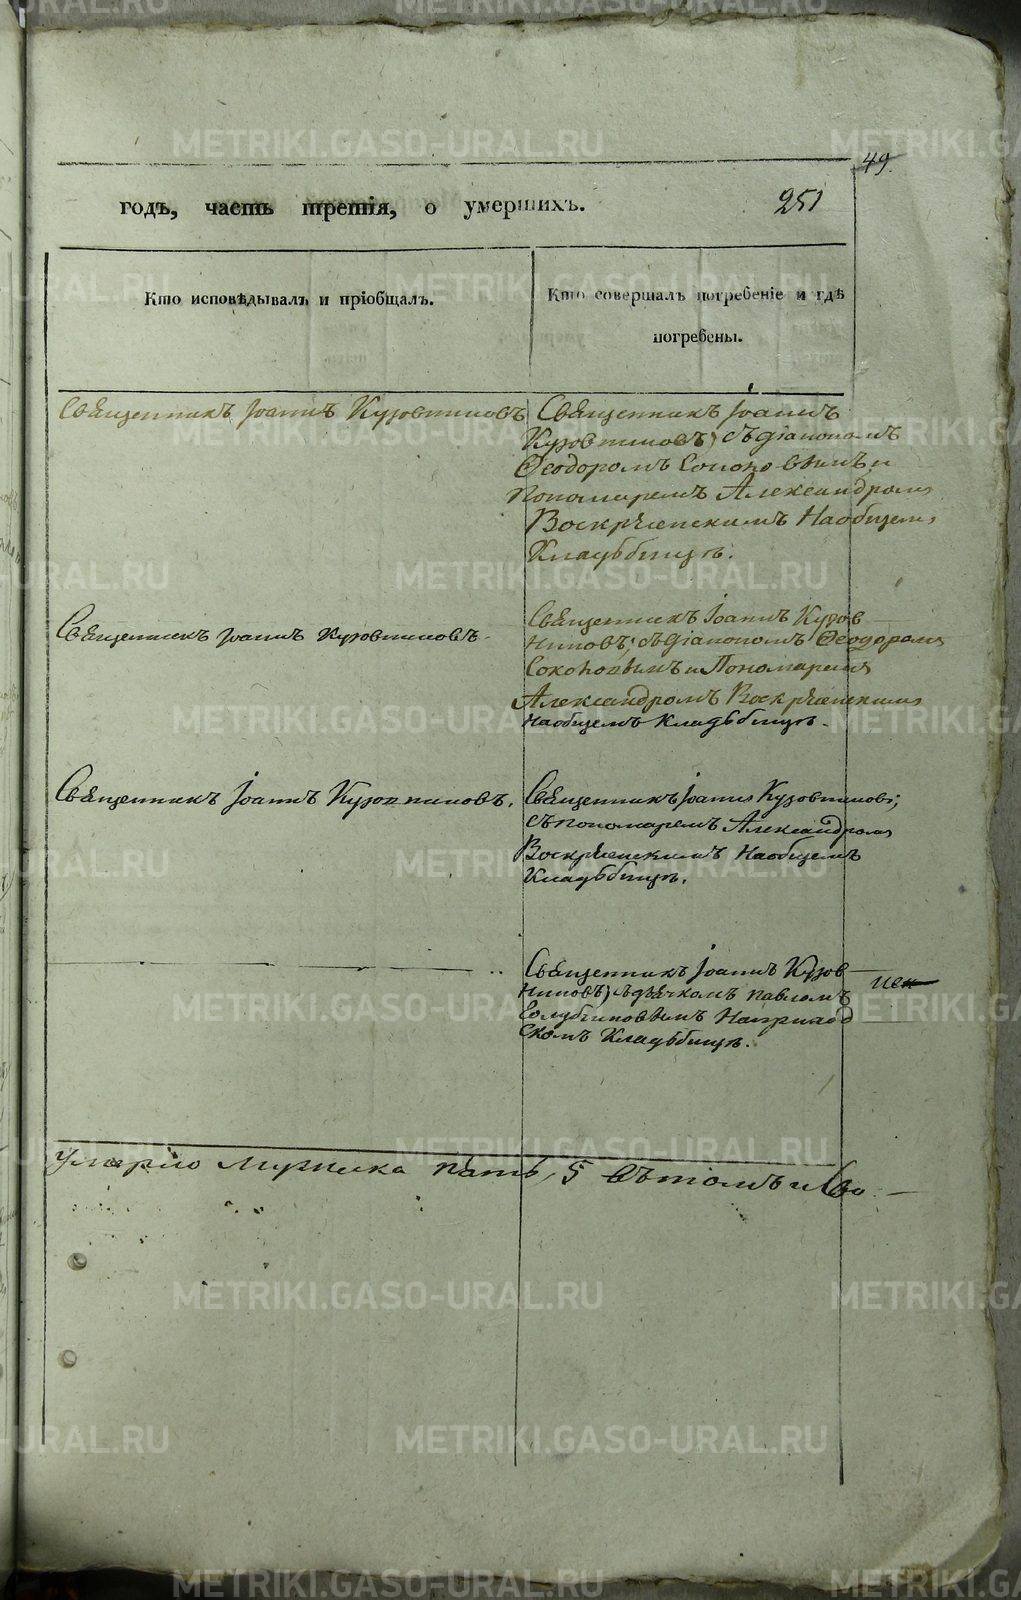 49.
годъ, часть третія, о умершихъ. 251
Кто исповѣдывалъ и пріобщалъ.
Кто совершалъ погребеніе и гдѣ
погребены.
Священникъ Іоаннъ Кузовниковъ
Священникъ Іоаннъ
Кузовниковъ, съ діакономъ
Ѳеодоромъ Соколовымъ и
Пономаремъ Александромъ
Воскресенскимъ На общемъ
Кладьбищѣ.
Священникъ Іоаннъ Кузовниковъ
Священникъ Іоаннъ Кузов
никовъ; съ діакономъ Ѳеодоромъ
Соколовымъ и Пономаремъ
Александромъ Воскресенскимъ
На общемъ Кладьбищѣ.
Священникъ Іоаннъ Кузовниковъ.
Священникъ Іоаннъ Кузовниковъ;
съ пономаремъ Александромъ
Воскресенскимъ На общемъ
Кладьбищѣ.
Священникъ Іоаннъ Кузов
никовъ, съ дьячкомъ Павломъ
На приход
скомъ Кладьбищѣ.
умерло Мужеска пять, 5 Вътомъ и
METRIKI.GASO-URAL.RU